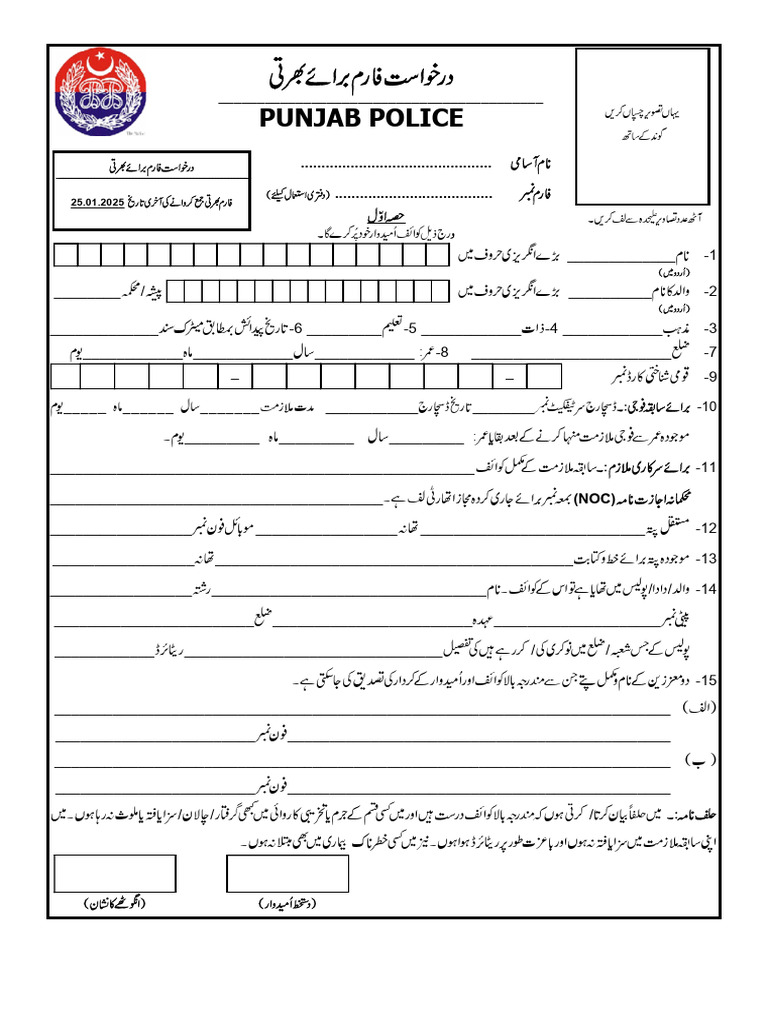 درخواست فارم برائے بھرتی
PUNJAB POLICE
یہاں تصویر چسپاں کریں
گوند کے ساتھ
نام آسامی ............................................
درخواست فارم برائے بھرتی
فارم بھرتی جمع کروانے کی آخری تاریخ 25.01.2025
فارم نمبر ..................................... (دفتری استعمال کیلئے)
آٹھ عدد تصاویر علیحدہ سے لف کریں۔
حصہ اوّل
درج ذیل کوائف اُمیدوار خود پُر کرے گا۔
1- نام ______________ بڑے انگریزی حروف میں
(اُردو میں)
2- والد کا نام ___________ بڑے انگریزی حروف میں پیشہ / محکمہ ____________
(اُردو میں)
3- مذہب ____________ 4- ذات ____________ 5- تعلیم _________ 6- تاریخ پیدائش بمطابق میٹرک سند __________________
7- ضلع __________________________ 8- عمر: ____________ سال ____________ ماہ ____________ یوم
9- قومی شناختی کارڈ نمبر – –
10- برائے سابقہ فوجی:۔ ڈسچارج سرٹیفکیٹ نمبر ___________ تاریخ ڈسچارج ____________ مدت ملازمت _______ سال ______ ماہ _____ یوم
موجودہ عمر سے فوجی ملازمت منہا کرنے کے بعد بقایا عمر: ____________ سال _________ ماہ _________ یوم۔
11- برائے سرکاری ملازم:۔ سابقہ ملازمت کے مکمل کوائف __________________________________________________
محکمانہ اجازت نامہ (NOC) بمعہ نمبر برائے جاری کردہ مجاز اتھارٹی لف ہے۔ ________________________________________
12- مستقل پتہ ___________________________ تھانہ _________________ موبائل فون نمبر _________________
13- موجودہ پتہ برائے خط و کتابت ____________________________________________ تھانہ _________________
14- والد / دادا / پولیس میں تھا یا ہے تو اس کے کوائف۔ نام _________________________________ رشتہ _________________
پیٹی نمبر ____________________ عہدہ ________________________ ضلع ________________________
پولیس کے جس شعبہ / ضلع میں نوکری کی / کر رہے ہیں کی تفصیل _______________________________ ریٹائرڈ ________________
15- دو معززین کے نام و مکمل پتے جن سے مندرجہ بالا کوائف اور اُمیدوار کے کردار کی تصدیق کی جا سکتی ہے۔
(الف) __________________________________________________________________________
______________________________________________ فون نمبر ________________________
(ب) __________________________________________________________________________
______________________________________________ فون نمبر ________________________
حلف نامہ:۔ میں حلفاً بیان کرتا / کرتی ہوں کہ مندرجہ بالا کوائف درست ہیں اور میں کسی قسم کے جرم یا تخریبی کاروائی میں کبھی گرفتار / چالان / سزا یافتہ یا ملوث نہ رہا ہوں۔ میں
اپنی سابقہ ملازمت میں سزا یافتہ نہ ہوں اور باعزت طور پر ریٹائرڈ ہوا ہوں۔ نیز میں کسی خطرناک بیماری میں بھی مبتلا نہ ہوں۔
(دستخط اُمیدوار) (انگوٹھے کا نشان)